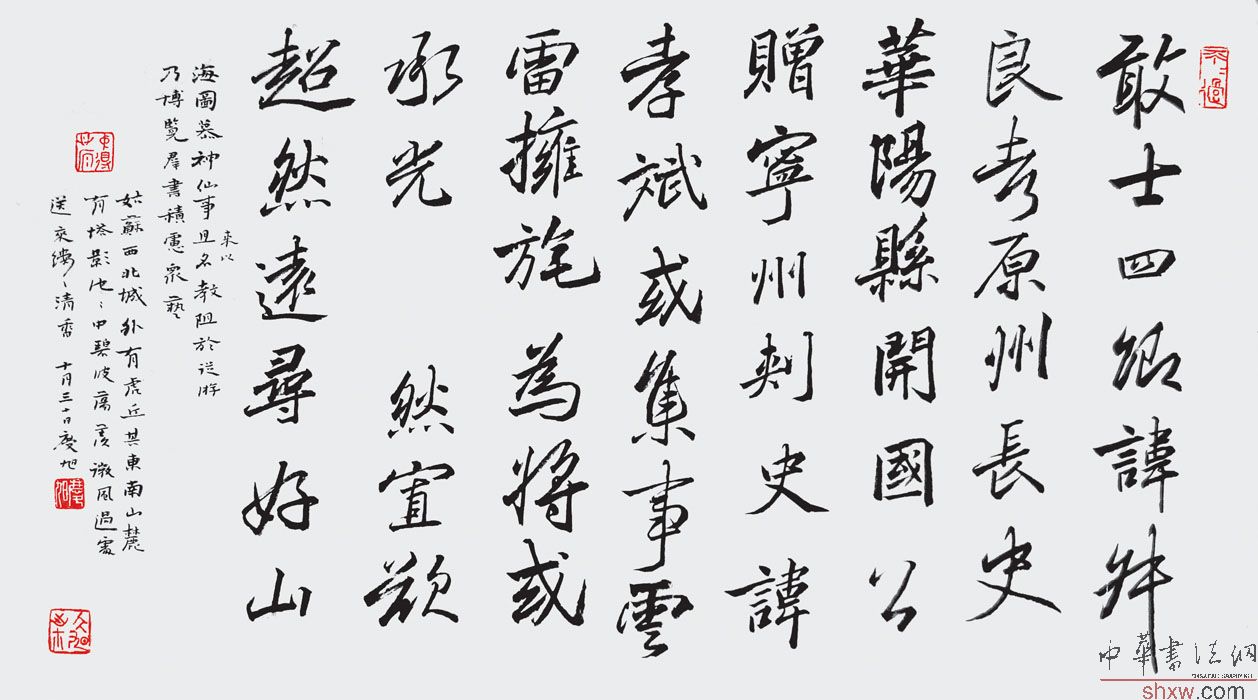 敢士四卿諱舛
良考原州長史
華陽縣開國公
贈寧州刾史諱
孝斌或集事雲
雷擁旄為將或
承光 然宜欲
超然遠尋好山
来以
海圖慕神仙事且名教阻於從游
乃博覽群書積慮眾藝
姑蘇西北城外有虎丘其東南山麓
有塔影池〻中碧波蕩漾微風過處
送來縷〻清香 十月三十日慶旭
中華書法網
shxw.com